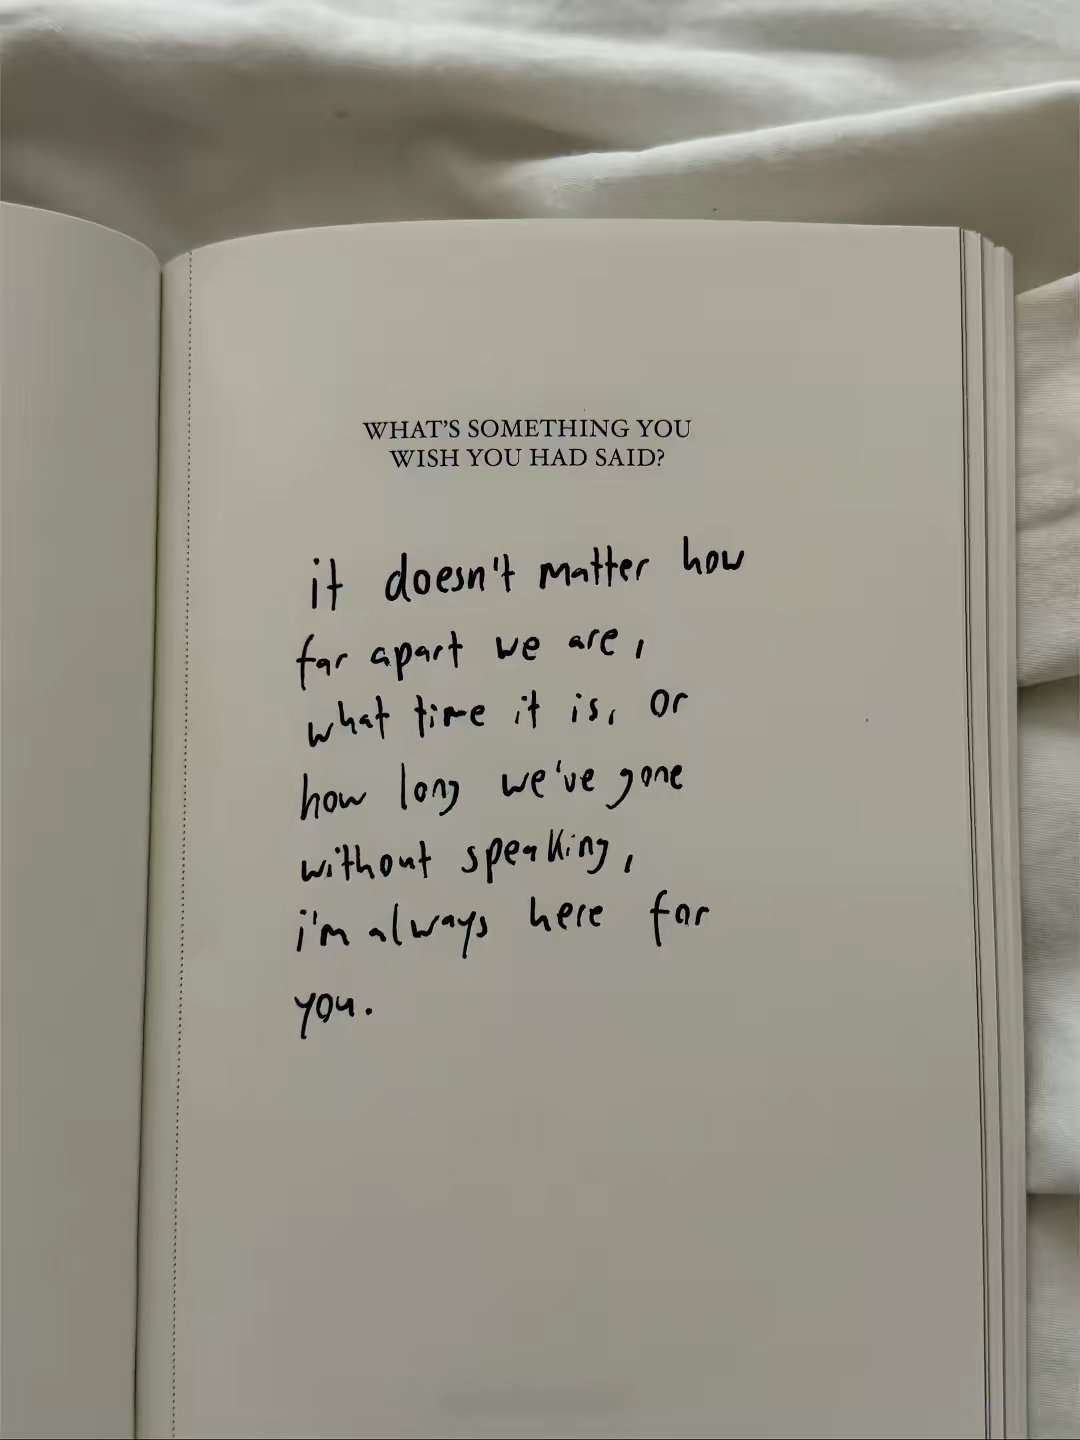 WHAT'S SOMETHING YOU
WISH YOU HAD SAID?
it doesn't matter how
far apart we are,
what time it is, or
how long we've gone
without speaking,
i'm always here for
you.